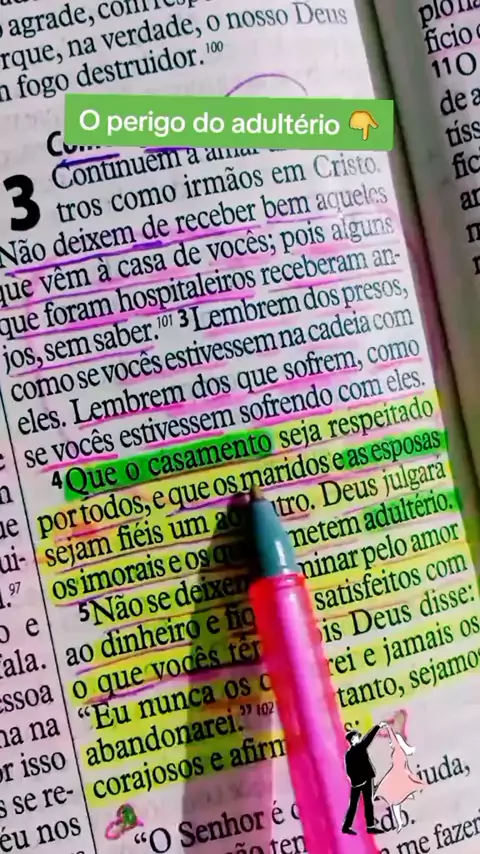 agrade, com resp
rque, na verdade, o nosso Deus
fogo destruidor.100
O perigo do adultério 👇
3
Continuem a amar
tros como irmãos em Cristo.
Não deixem de receber bem aqueles
que vêm à casa de vocês; pois alguns
que foram hospitaleiros receberam an-
jos, sem saber.101 3 Lembrem dos presos,
como se vocês estivessem na cadeia com
eles. Lembrem dos que sofrem, como
se vocês estivessem sofrendo com eles.
4 Que o casamento seja respeitado
por todos, e que os maridos e as esposas
sejam fiéis um ao outro. Deus julgará
os imorais e os que metem adultério.
5 Não se deixem minar pelo amor
ao dinheiro e fiq satisfeitos com
o que vocês têm is Deus disse:
“Eu nunca os rei e jamais os
abandonarei.”102 tanto, sejamos
corajosos e afirm s:
“O Senhor é juda,
do.
me fazer
97
o e
fala.
essoa
na na
or isso
s se re-
éu nos
ui-
ue
fício
11 O
de a
tíss
fic